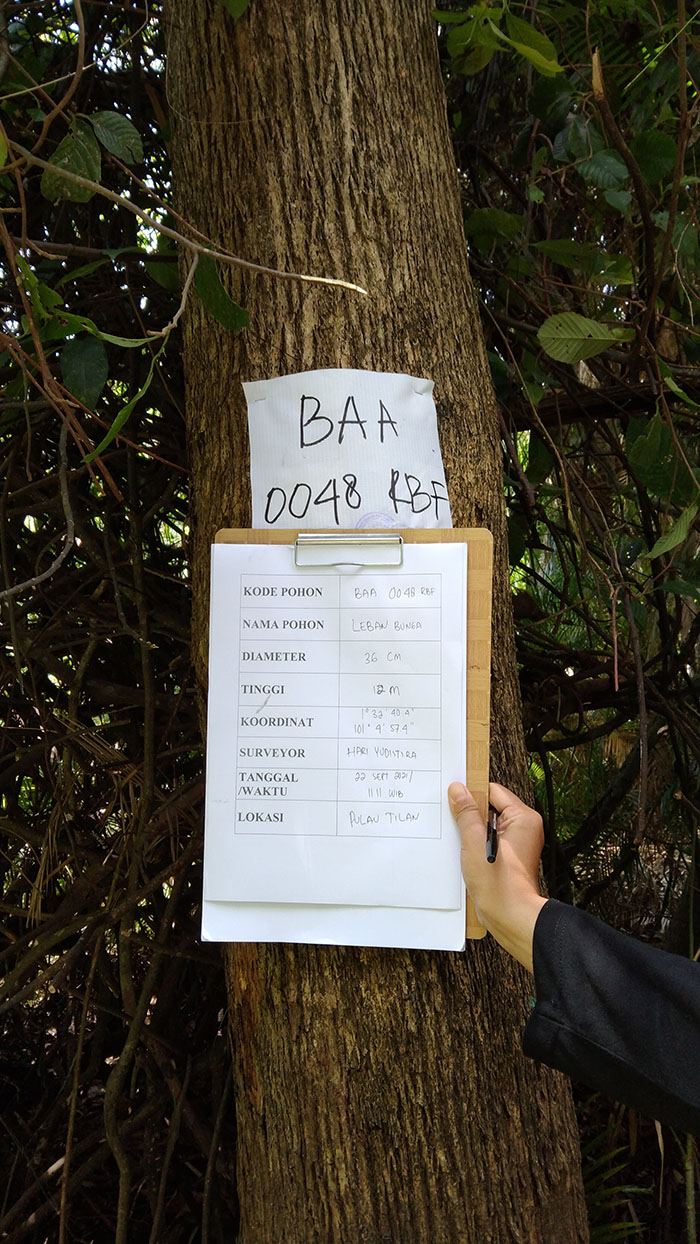 BAA
0048 RBF
KODE POHON BAA 0048 RBF
NAMA POHON LEBAN BUNGA
DIAMETER 36 CM
TINGGI 12 M
KOORDINAT 1° 32' 40.4"
101° 4' 57.4"
SURVEYOR HARI YUDISTIRA
TANGGAL 22 SEPT 2021/
/WAKTU 11.11 WIB
LOKASI PULAU TILAN